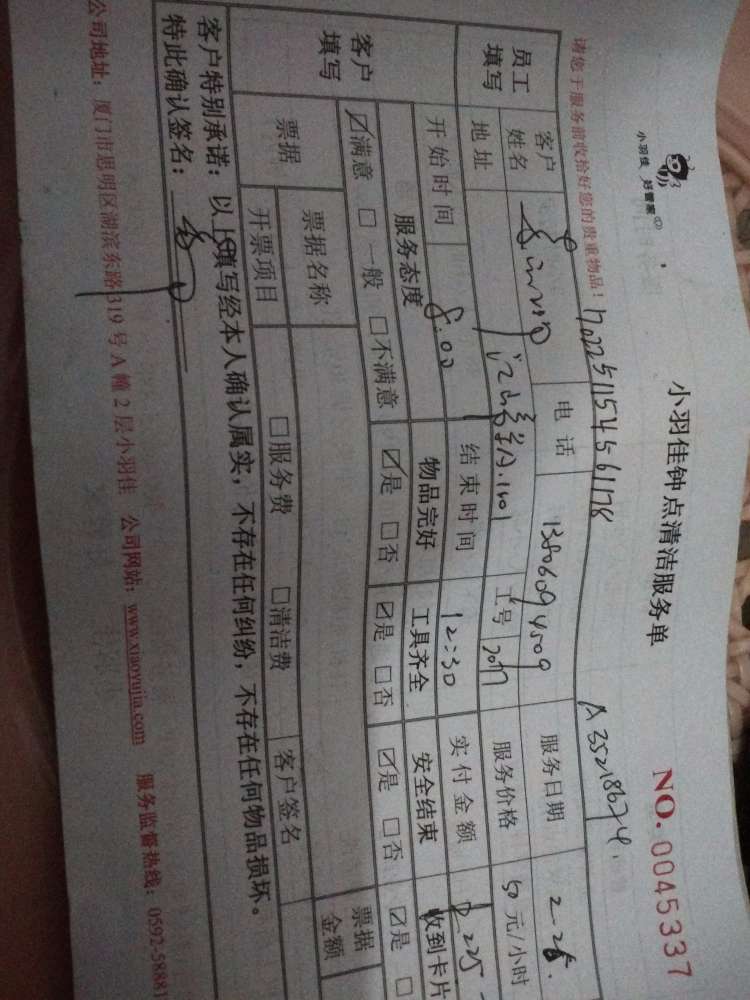 小羽佳 好管家
小羽佳钟点清洁服务单
NO. 0045337
请您于服务前收拾好您的贵重物品!
A35218674
员工填写 客户姓名 电话 13806094509 服务日期 2.26.
地址 工号 服务价格 50 元/小时
客户填写 开始时间 8:00 结束时间 12:30 实付金额 225
服务态度 物品完好 工具齐全 安全结束 收到卡片
☑满意 □一般 □不满意 ☑是 □否 ☑是 □否 ☑是 □否 ☑是 □
票据 票据名称 □服务费 □清洁费 客户签名 票据金额
开票项目
客户特别承诺:以上填写经本人确认属实,不存在任何纠纷,不存在任何物品损坏。
特此确认签名:
公司地址:厦门市思明区湖滨东路319号A幢2层小羽佳 公司网站:www.xiaoyujia.com 服务监督热线:0592-58881